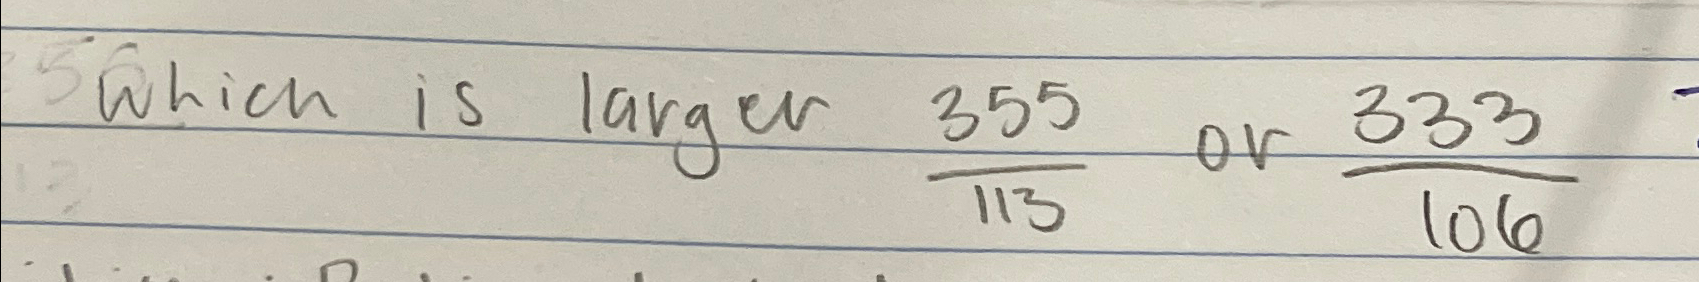 Which is larger 355/113 or 333/106 ?